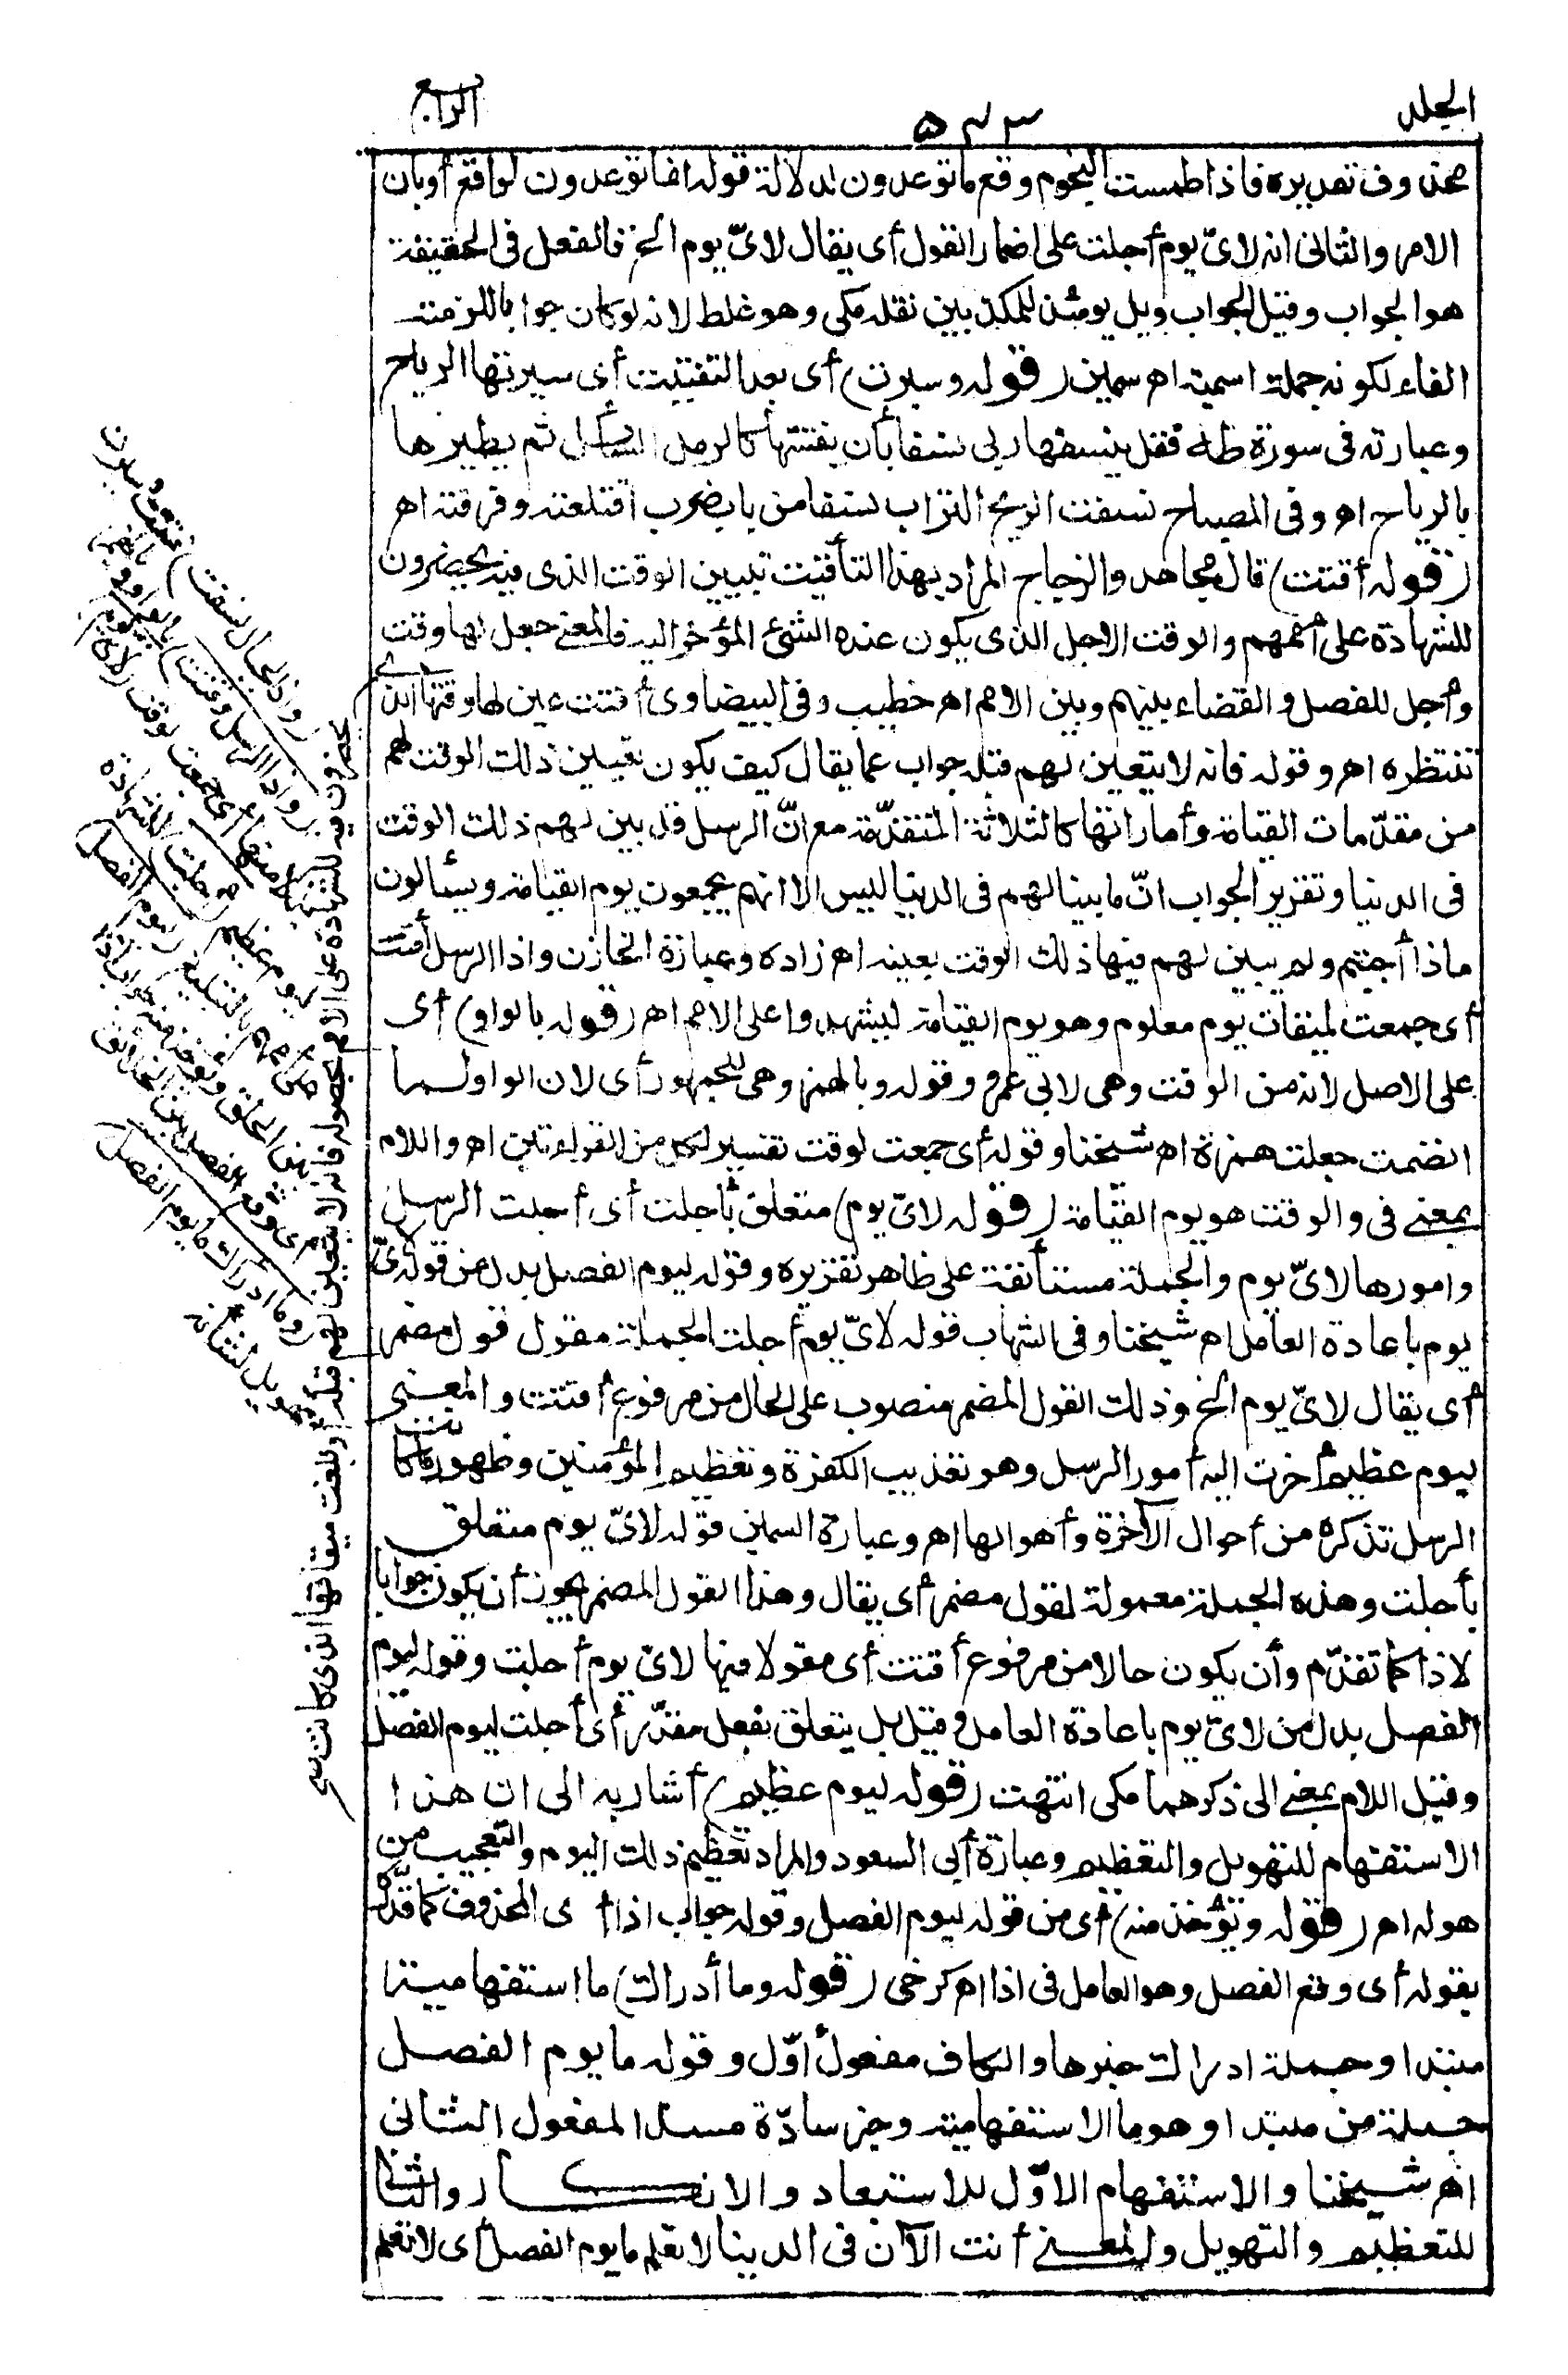 الجلد
٥٣٣
الرابع
محذوف تقديره فاذا طمست النجوم وقع ما توعدون لدلالة قوله انما توعدون لواقع أو بان
الامر والثانى انه لاىّ يوم أجلت على اضمار القول أى يقال لاىّ يوم الخ فالفعل فى الحقيقة
هو الجواب وقيل الجواب ويل يومئذ للمكذبين نقله مكى وهو غلط لانه لو كان جوابا للزمته
الفاء لكونه جملة اسمية اهـ سمين (قوله وسيرت) أى بعد التفتيت أى سيرتها الرياح
وعبارته فى سورة طه فقل ينسفها ربى نسفا بأن يفتتها كالرمل السائل ثم يطيرها
بالرياح اهـ وفى المصباح نسفت الريح التراب نسفا من باب ضرب اقتلعته وفرقته اهـ
(قوله أقتت) قال مجاهد والزجاج المراد بهذا التأقيت تبيين الوقت الذى فيه يحضرون
للشهادة على أممهم والوقت الاجل الذى يكون عنده الشئ المؤخر اليه فالمعنى جعل لها وقت
وأجل للفصل والقضاء بينهم وبين الامم اهـ خطيب وفى البيضاوى أقتت عين لها وقتها الذى
تنتظره اهـ وقوله فانه لا يتعين لهم قبله جواب عما يقال كيف يكون تعيين ذلك الوقت لهم
من مقدّمات القيامة وأماراتها كالثلاثة المتقدّمة مع انّ الرسل قد بين لهم ذلك الوقت
فى الدنيا وتقرير الجواب انّ ما بينا لهم فى الدنيا ليس الا انهم يجمعون يوم القيامة ويسألون
ماذا أجبتم ولم يبين لهم فيها ذلك الوقت بعينه اهـ زاده وعبارة الخازن واذا الرسل أقتت
أى جمعت لميقات يوم معلوم وهو يوم القيامة ليشهدوا على الامم اهـ (قوله بالواو) أى
على الاصل لانه من الوقت وهى لابى عمرو وقوله وبالهمز وهى للجمهور أى لان الواو لما
انضمت جعلت همزة اهـ شيخنا وقوله أى جمعت لوقت تفسير لكل من القراءتين اهـ واللام
بمعنى فى والوقت هو يوم القيامة (قوله لاىّ يوم) متعلق بأجلت أى أجلت الرسل
وامورها لاىّ يوم والجملة مستأنفة على ظاهر تقريره وقوله ليوم الفصل بدل من قوله لأىّ
يوم باعادة العامل اهـ شيخنا وفى الشهاب قوله لاىّ يوم أجلت الجملة مقول قول مضمر
أى يقال لاىّ يوم الخ وذلك القول المضمر منصوب على الحال من مرفوع أقتت والمعنى
ليوم عظيم أخرت اليه أمور الرسل وهو تعذيب الكفرة وتعظيم المؤمنين وظهور ما كانت
الرسل تذكره من أحوال الآخرة وأهوالها اهـ وعبارة السمين قوله لاىّ يوم متعلق
بأجلت وهذه الجملة معمولة لقول مضمر أى يقال وهذا القول المضمر يجوز أن يكون جوابا
لاذا كما تقدّم وأن يكون حالا من مرفوع أقتت أى مقولا فيها لاىّ يوم أجلت وقوله ليوم
الفصل بدل من لاىّ يوم باعادة العامل وقيل بل يتعلق بفعل مقدّر أى أجلت ليوم الفصل
وقيل اللام بمعنى الى ذكرهما مكى انتهت (قوله ليوم عظيم) أشار به الى ان هذا
الاستفهام للتهويل والتعظيم وعبارة أبى السعود والمراد تعظيم ذلك اليوم والتعجيب من
هوله اهـ (قوله ويؤخذ منه) أى من قوله ليوم الفصل وقوله جواب اذا أى المحذوف كما قدّره
بقوله أى وقع الفصل وهو العامل فى اذا اهـ كرخى (قوله وما أدراك) ما استفهامية
مبتدا وجملة ادراك خبرها والكاف مفعول أوّل وقوله ما يوم الفصل
جملة من مبتدا وهو ما الاستفهامية وخبر سادّة مسدّ المفعول الثانى
اهـ شيخنا والاستفهام الاوّل للاستبعاد والانكار والثانى
للتعظيم والتهويل والمعنى أنت الآن فى الدنيا لا تعلم ما يوم الفصل أى لا تعلم
(واذا الجبال نسفت) فتتت وسيرت
(واذا الرسل وقتت) بالواو وبالهمز
بدلا منها أى جمعت لوقت (لاىّ يوم)
ليوم عظيم (أجلت) للشهادة
على أممهم بالتبليغ (ليوم الفصل)
بين الخلق ويؤخذ منه جواب اذا
أى وقع الفصل بين الخلائق
(وما أدراك ما يوم الفصل)
تهويل لشأنه
يحضرون فيه للشهادة على الامم بحصوله فانه لا يتعين لهم قبله أو بلغت ميقاتها الذى كانت